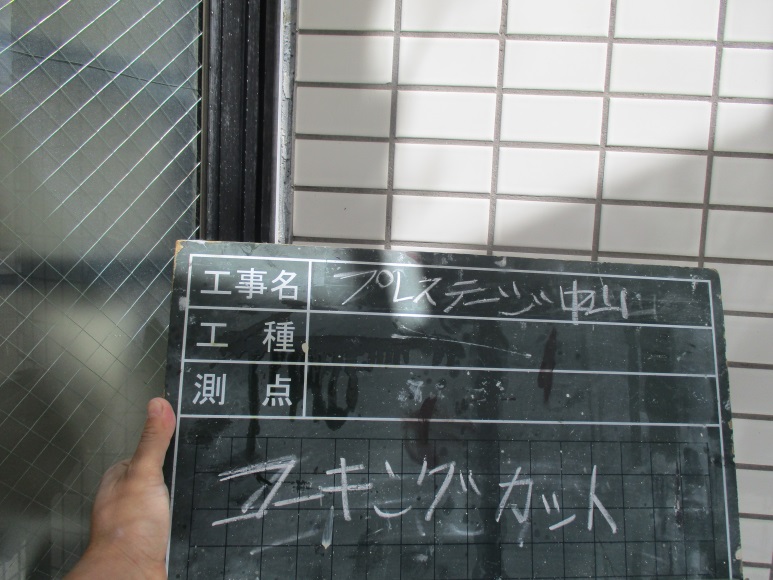 工事名 プレステージ中山
工種
測点
コーキングカット